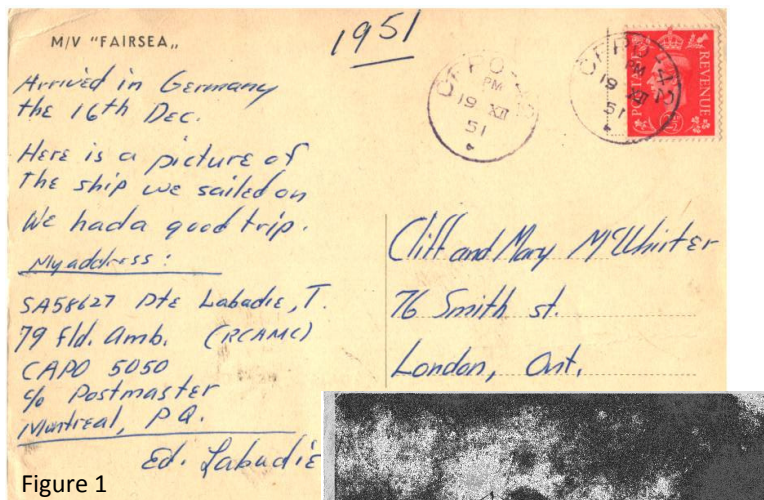 M/V "FAIRSEA„
1951
Arrived in Germany
the 16th Dec.
Here is a picture of
the ship we sailed on
We had a good trip.
My address:
SA58627 Pte Labadie, T.
79 Fld. Amb. (RCAMC)
CAPO 5050
c/o Postmaster
Montreal, P.Q.
Ed. Labadie
PM
19 XII
51
PM
19 XII
51
POSTAGE
REVENUE
Cliff and Mary McWhirter
76 Smith st.
London, Ont.
Figure 1